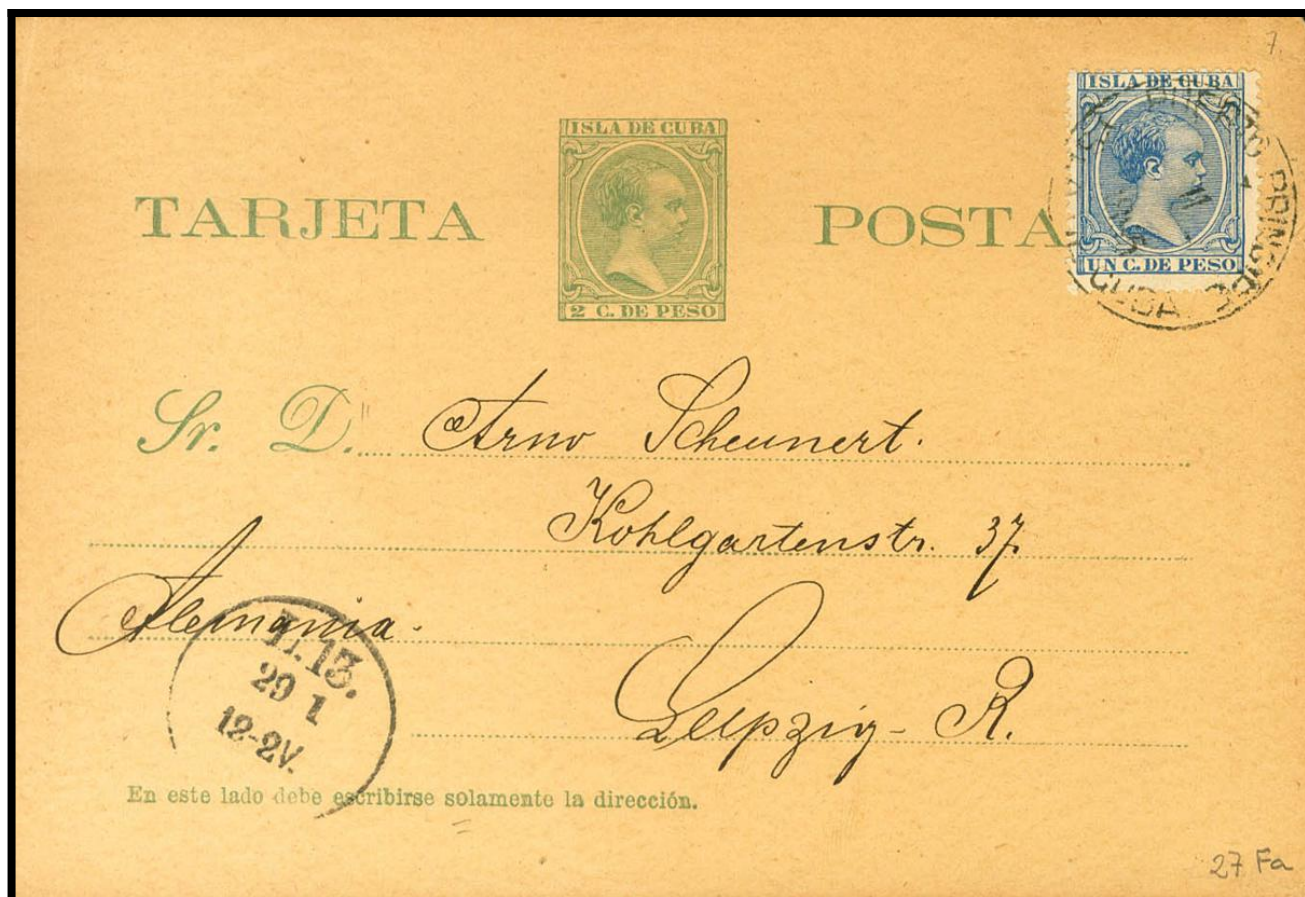 7.
ISLA DE CUBA
UN C. DE PESO
PUERTO PRINCIPE
CUBA
ISLA DE CUBA
2 C. DE PESO
TARJETA POSTA
Sr. D. Arno Scheunert.
Kohlgartenstr. 37
Alemania.
Leipzig - R.
L.13.
29 1
12-2V.
En este lado debe escribirse solamente la dirección.
27 Fa